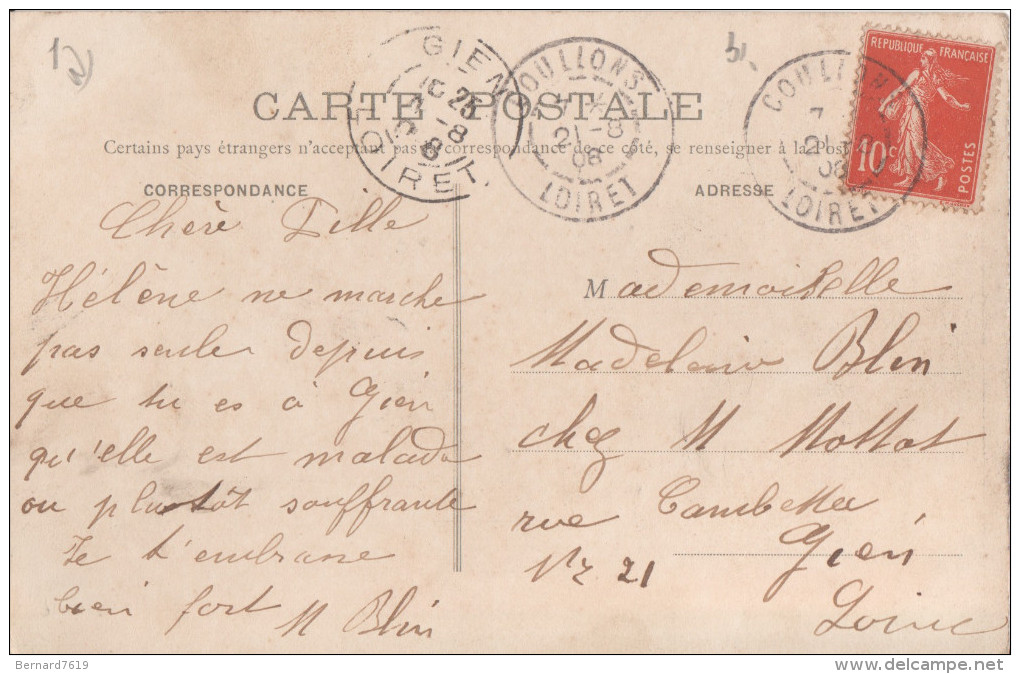 1
GIEN
15 25
-8
08
LOIRET
COULLONS
7 *
21-8
08
LOIRET
COULLONS
7
21-8
08
LOIRET
REPUBLIQUE FRANÇAISE
10 c
POSTES
CARTE POSTALE
Certains pays étrangers n'acceptant pas de correspondance de ce côté, se renseigner à la Poste
CORRESPONDANCE
ADRESSE
Chère Fille
Hélène ne marche
pas seule depuis
que tu es à Gien
qu'elle est malade
ou plutôt souffrante
Je t'embrasse
bien fort M Blin
Mademoiselle
Madeleine Blin
chez M Mottat
rue Gambetta
N° 21 Gien
Loiret
Bernard7619
delcampe.net